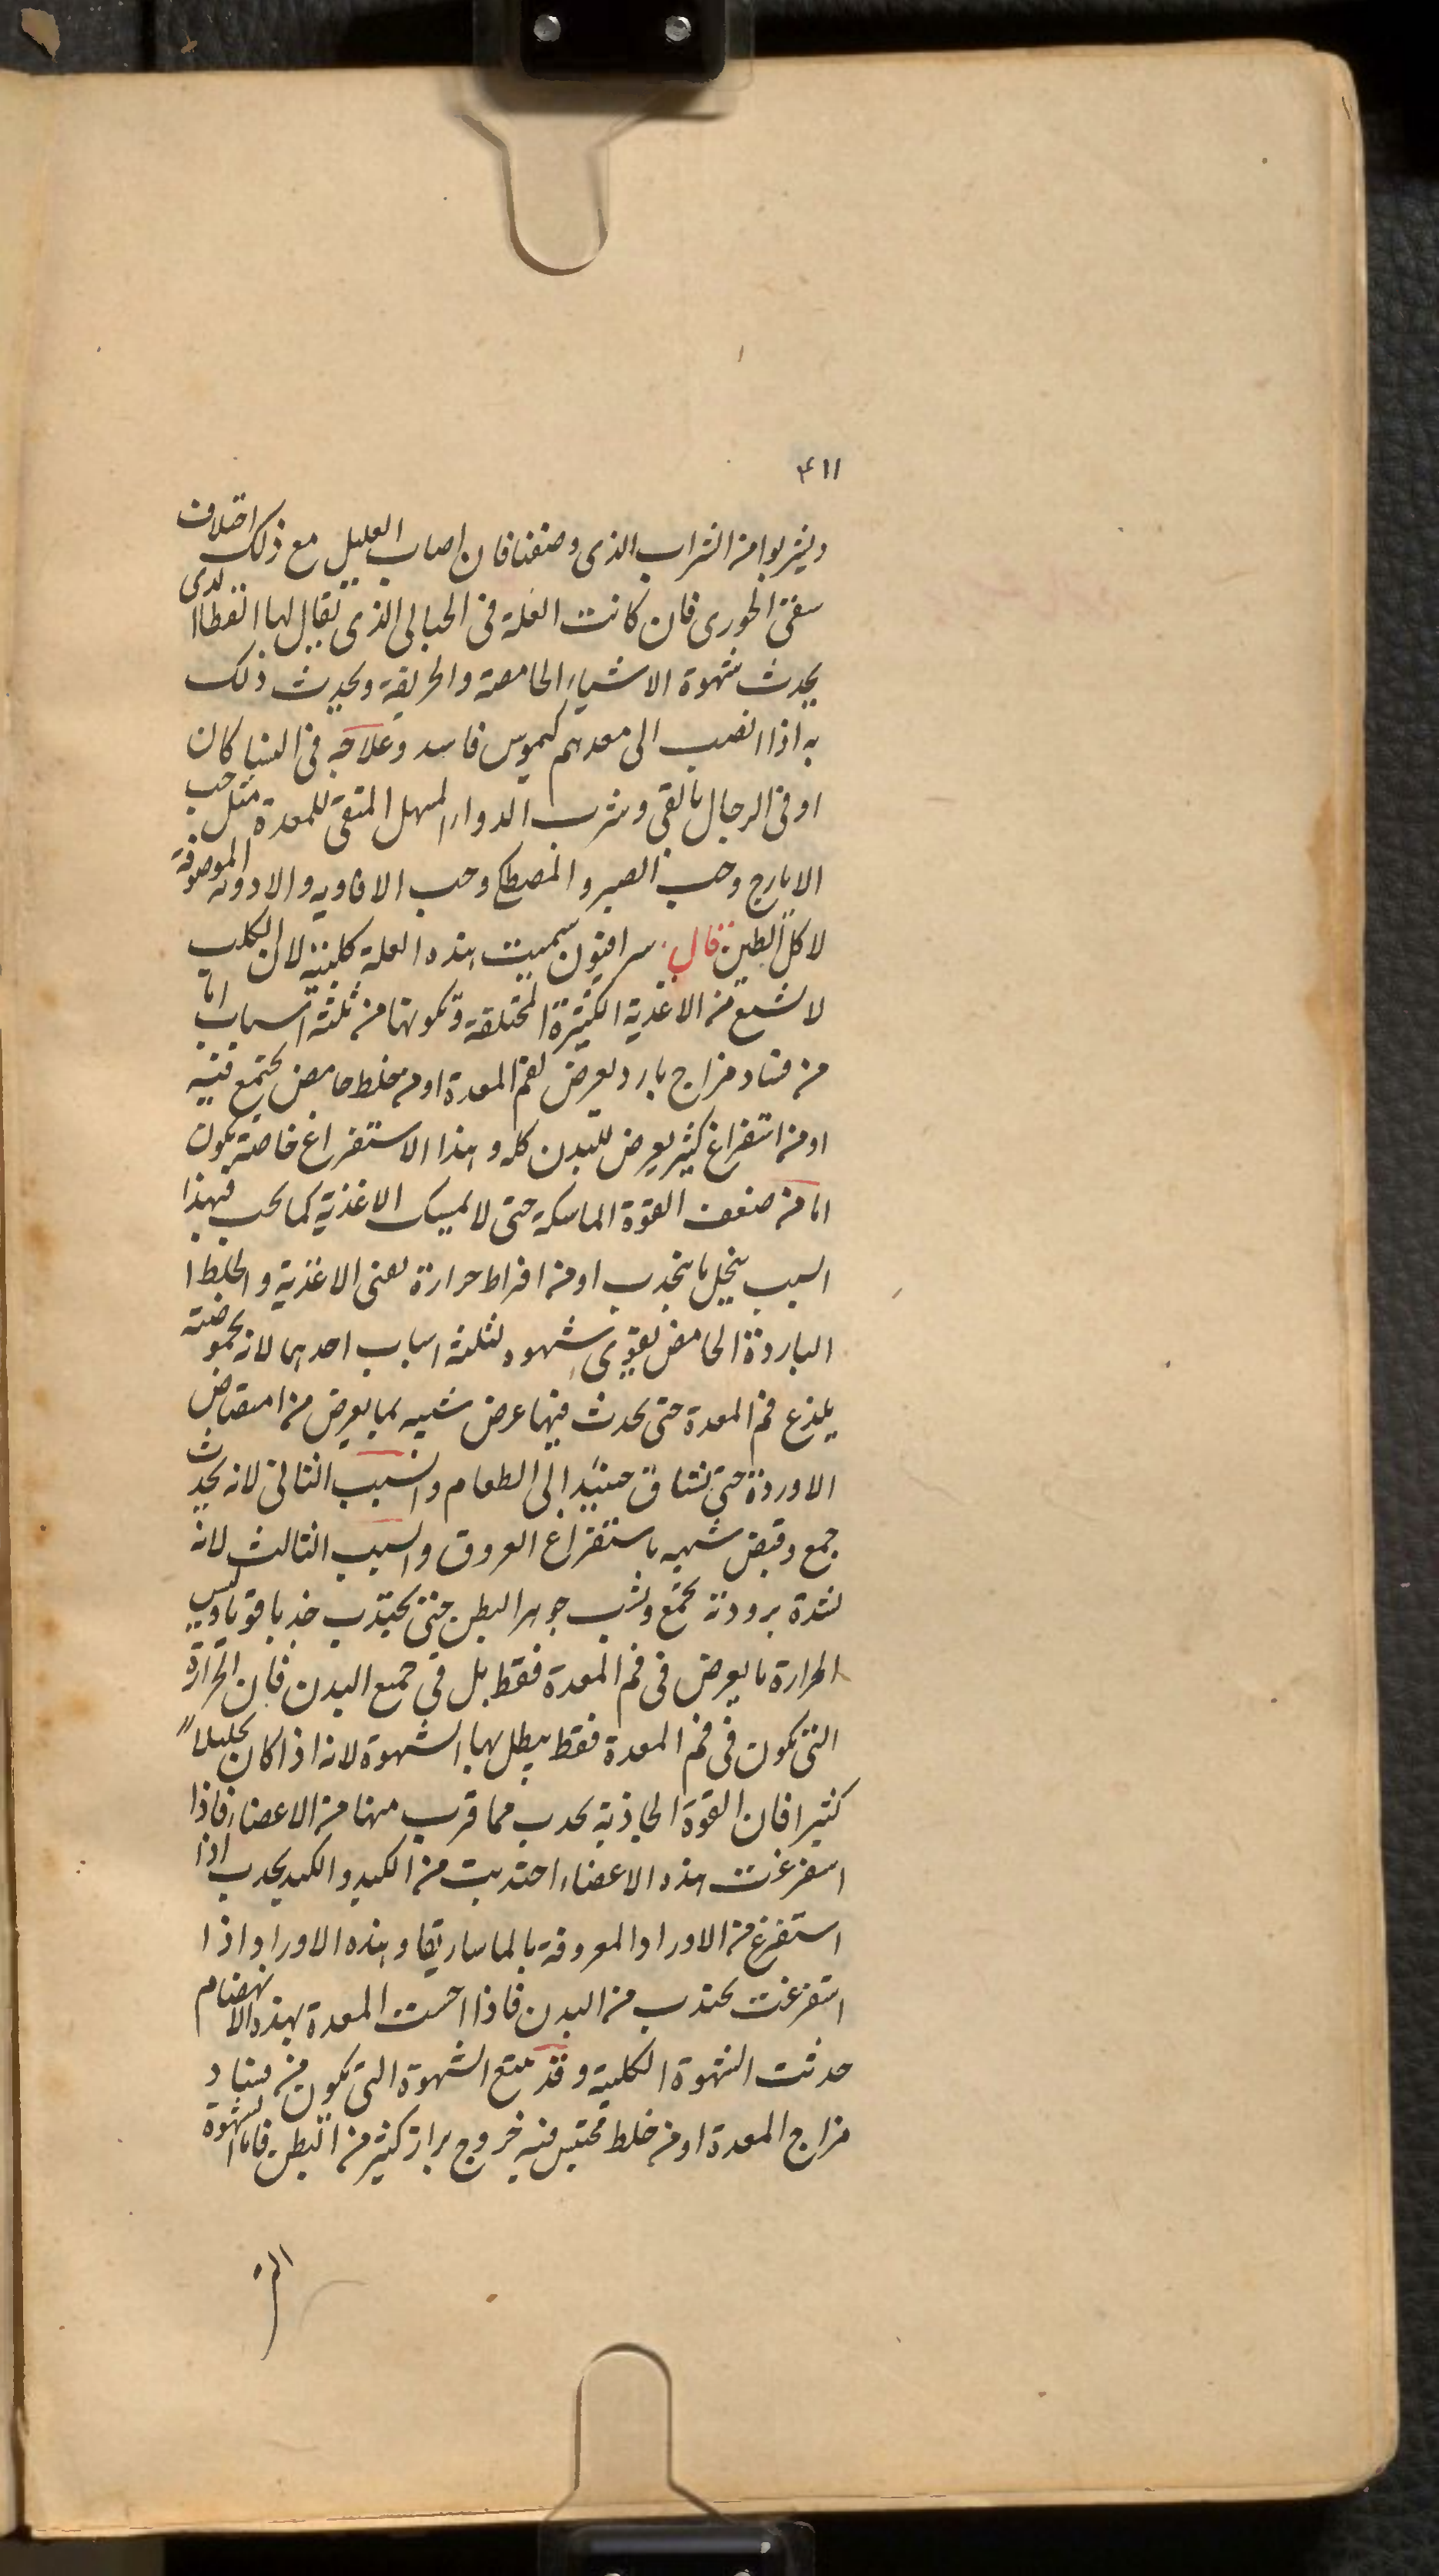 ۴۱۱
ويشربوا من الشراب الذى وصفنا فان اصاب العليل مع ذلك اختلاف
سقى الخورى فان كانت العلة فى الحبالى الذى يقال لها انقطاا لدى
يحدث شهوة الاشياء الحامضة والحريفة ويحدث ذلك
به اذا انصب الى معدهم كيموس فاسد وعلاجه فى النسا كان
او فى الرجال بالقى وشرب الدواء المسهل المنقى للمعدة مثل حب
الايارج وحب الصبر والمصطكى وحب الافاويه والادوية الموصوفة
لاكل الطين قال سرافيون سميت هذه العلة كلبية لان الكلب
لا يشبع من الاغذية الكثيرة المختلفة وتكونها من ثلثة اسباب اما
من فساد مزاج بارد يعرض لفم المعدة او من خلط حامض يجتمع فيه
او من استفراغ كثير يعرض للبدن كله وهذا الاستفراغ خاصة يكون
اما من ضعف القوة الماسكة حتى لا يمسك الاغذية كما يجب فبهذا
السبب ينحل ما ينجذب او من افراط حرارة يعنى الاغذية والخلط ا
الباردة الحامض يقوى شهوه لثلثة اسباب احدها لانه بحموضته
يلذع فم المعدة حتى يحدث فيها عرض شبيه بما يعرض من امتصاص
الاوردة حتى تشتاق حينئذ الى الطعام والسبب الثانى لانه يحدث
جمع وقبض شبيه باستفراغ العروق والسبب الثالث لانه
لشدة برودته يجمع ويشب جوهر البطن حتى يجتذب جذبا قويا وليس
الحرارة ما يعرض فى فم المعدة فقط بل فى جميع البدن فان الحرارة
التى تكون فى فم المعدة فقط يبطل بها الشهوة لانه اذا كان تحليلا
كثيرا فان القوة الجاذبة يجذب مما قرب منها من الاعضاء فاذا
استفرغت هذه الاعضاء اجتذبت من الكبد والكبد يجذب اذا
استفرغ من الاوراد المعروفة بالماساريقا وهذه الاوراد اذا
استفرغت يجتذب من البدن فاذا احست المعدة بهذه الانهضام
حدثت الشهوة الكلبية وقد يتبع الشهوة التى تكون من فساد
مزاج المعدة او من خلط محتبس فيه خروج براز كثير من البطن فاما الشهوة